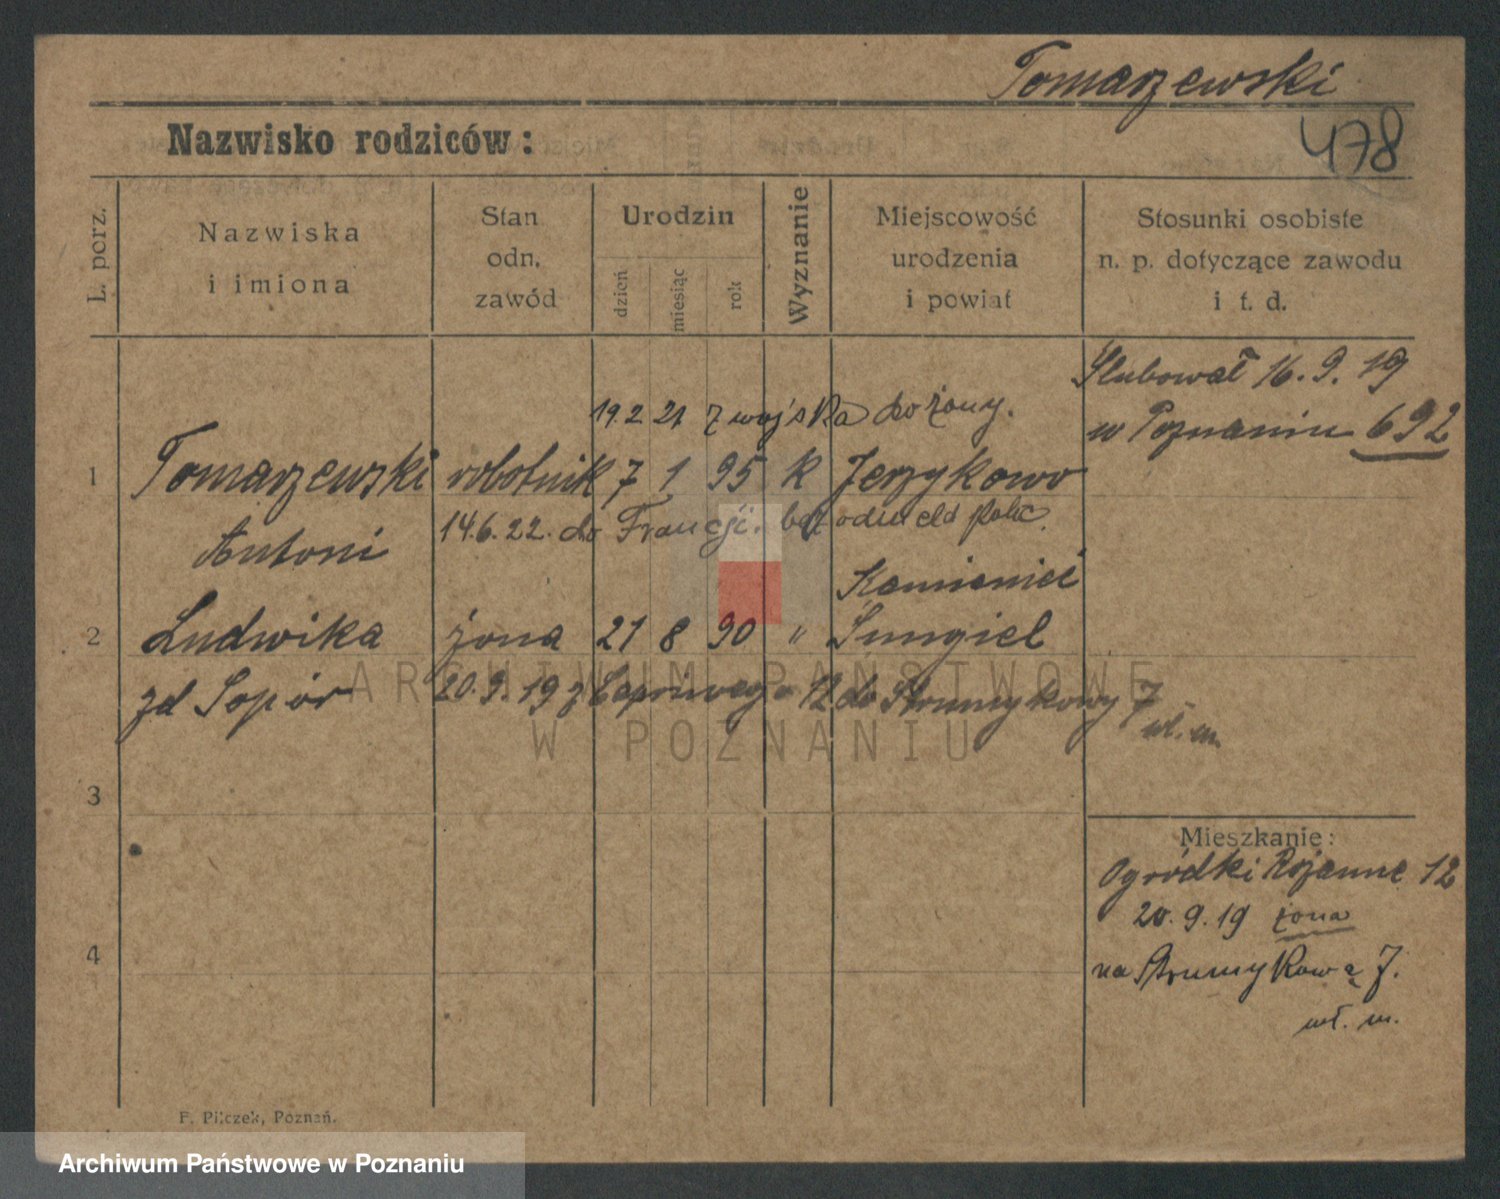 Tomarzewski
Nazwisko rodziców:
478
L. porz.
Nazwiska
i imiona
Stan
odn.
zawód
Urodzin
dzień
miesiąc
rok
Wyznanie
Miejscowość
urodzenia
i powiat
Stosunki osobiste
n. p. dotyczące zawodu
i t. d.
Ślubował 16. 9. 19
w Poznaniu 692
19.2.21 z wojska do żony.
1 Tomarzewski robotnik 7 1 95 k Jerzykowo
Antoni
14.6.22. do Francji. bez
Kamieniec
2 Ludwika żona 21 8 90 "
zd Sopór 20.9.19 z Capriviego 12 do Strumykowy 7
wł. m.
3
4
Mieszkanie:
Ogródki 12
20.9.19 żona
na Strumykową 7.
wł. m.
F. Pilczek, Poznań.
ARCHIWUM PAŃSTWOWE
W POZNANIU
Archiwum Państwowe w Poznaniu